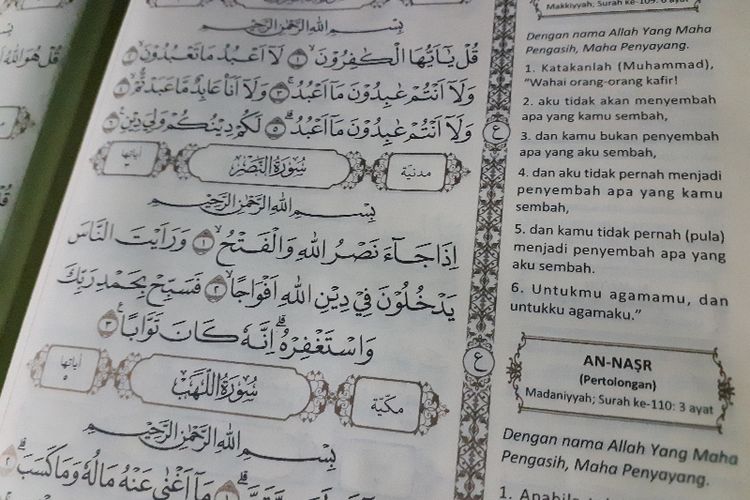 بِسْمِ اللّٰهِ الرَّحْمٰنِ الرَّحِيْمِ
قُلْ يٰٓاَيُّهَا الْكٰفِرُوْنَۙ ١ لَآ اَعْبُدُ مَا تَعْبُدُوْنَۙ ٢
وَلَآ اَنْتُمْ عٰبِدُوْنَ مَآ اَعْبُدُۚ ٣ وَلَآ اَنَا۠ عَابِدٌ مَّا عَبَدْتُّمْۙ ٤
وَلَآ اَنْتُمْ عٰبِدُوْنَ مَآ اَعْبُدُۗ ٥ لَكُمْ دِيْنُكُمْ وَلِيَ دِيْنِ ٦
مدنيّة سُوْرَةُ النَّصْرِ اٰياتها ٣
بِسْمِ اللّٰهِ الرَّحْمٰنِ الرَّحِيْمِ
اِذَا جَاۤءَ نَصْرُ اللّٰهِ وَالْفَتْحُۙ ١ وَرَاَيْتَ النَّاسَ
يَدْخُلُوْنَ فِيْ دِيْنِ اللّٰهِ اَفْوَاجًاۙ ٢ فَسَبِّحْ بِحَمْدِ رَبِّكَ
وَاسْتَغْفِرْهُۗ اِنَّهٗ كَانَ تَوَّابًا ٣
مكيّة سُوْرَةُ اللَّهَبِ اٰياتها ٥
بِسْمِ اللّٰهِ الرَّحْمٰنِ الرَّحِيْمِ
مَآ اَغْنٰى عَنْهُ مَالُهٗ وَمَا كَسَبَۗ ٢
ع
ع
Makkiyyah; Surah ke-109: 6 ayat
Dengan nama Allah Yang Maha
Pengasih, Maha Penyayang.
1. Katakanlah (Muhammad),
"Wahai orang-orang kafir!
2. aku tidak akan menyembah
apa yang kamu sembah,
3. dan kamu bukan penyembah
apa yang aku sembah,
4. dan aku tidak pernah menjadi
penyembah apa yang kamu
sembah,
5. dan kamu tidak pernah (pula)
menjadi penyembah apa yang
aku sembah.
6. Untukmu agamamu, dan
untukku agamaku."
AN-NAṢR
(Pertolongan)
Madaniyyah; Surah ke-110: 3 ayat
Dengan nama Allah Yang Maha
Pengasih, Maha Penyayang.